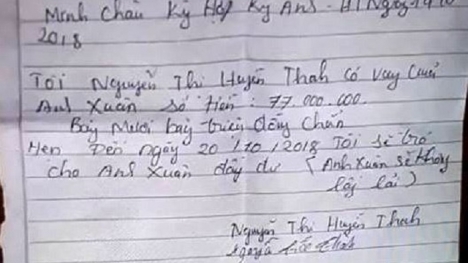 Minh Châu Kỳ Hợp Kỳ Anh - HT Ngày
2018
Tôi Nguyễn Thị Huyền Thah có vay cưới
Anh Xuân số tiền : 77.000.000.
Bảy Mươi bảy triệu đồng Chẵn
Hẹn Đến ngày 20/10/2018 Tôi sẽ trả
cho Anh Xuân đầy đủ (Anh Xuân sẽ không
lấy lãi)
Nguyễn Thị Huyền Thah
Nguyễn